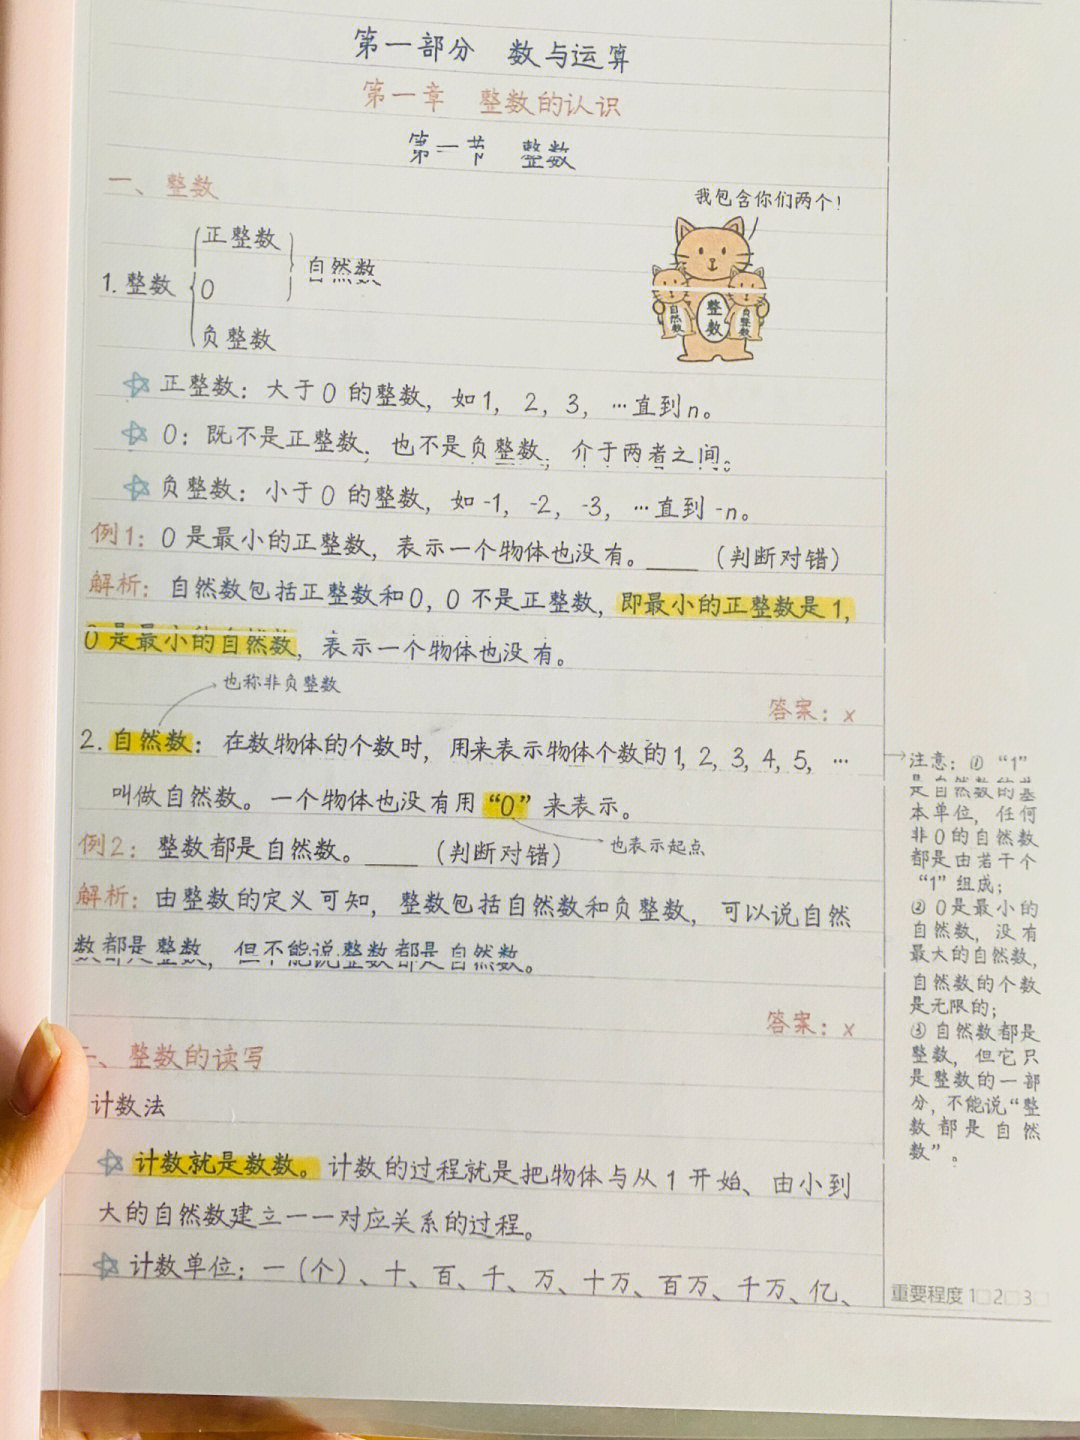 第一部分 数与运算
第一章 整数的认识
第一节 整数
一、整数
我包含你们两个！
正整数
1. 整数
0
自然数
负整数
自然数
整数
负整数
☆ 正整数：大于0的整数，如1，2，3，…直到n。
☆ 0：既不是正整数，也不是负整数，介于两者之间。
☆ 负整数：小于0的整数，如-1，-2，-3，…直到-n。
例1：0是最小的正整数，表示一个物体也没有。____（判断对错）
解析：自然数包括正整数和0，0不是正整数，即最小的正整数是1，
0是最小的自然数，表示一个物体也没有。
也称非负整数
答案：x
2. 自然数：在数物体的个数时，用来表示物体个数的1，2，3，4，5，…
叫做自然数。一个物体也没有用“0”来表示。
也表示起点
例2：整数都是自然数。____（判断对错）
解析：由整数的定义可知，整数包括自然数和负整数，可以说自然
数都是整数，但不能说整数都是自然数。
答案：x
二、整数的读写
计数法
☆ 计数就是数数。计数的过程就是把物体与从1开始、由小到
大的自然数建立一一对应关系的过程。
☆ 计数单位：一（个）、十、百、千、万、十万、百万、千万、亿、
注意：①“1”
是自然数的基
本单位，任何
非0的自然数
都是由若干个
“1”组成；
②0是最小的
自然数，没有
最大的自然数，
自然数的个数
是无限的；
③自然数都是
整数，但它只
是整数的一部
分，不能说“整
数都是自然
数”。
重要程度 1□2□3□